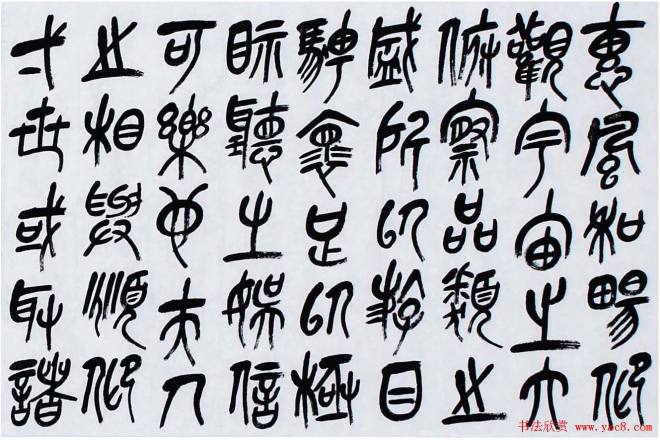 惠風和暢仰
觀宇宙之大
俯察品類之
盛所以遊目
騁懷足以極
視聽之娛信
可樂也夫人
之相與頫仰
弌世或取諸
书法欣赏 www.yac8.com